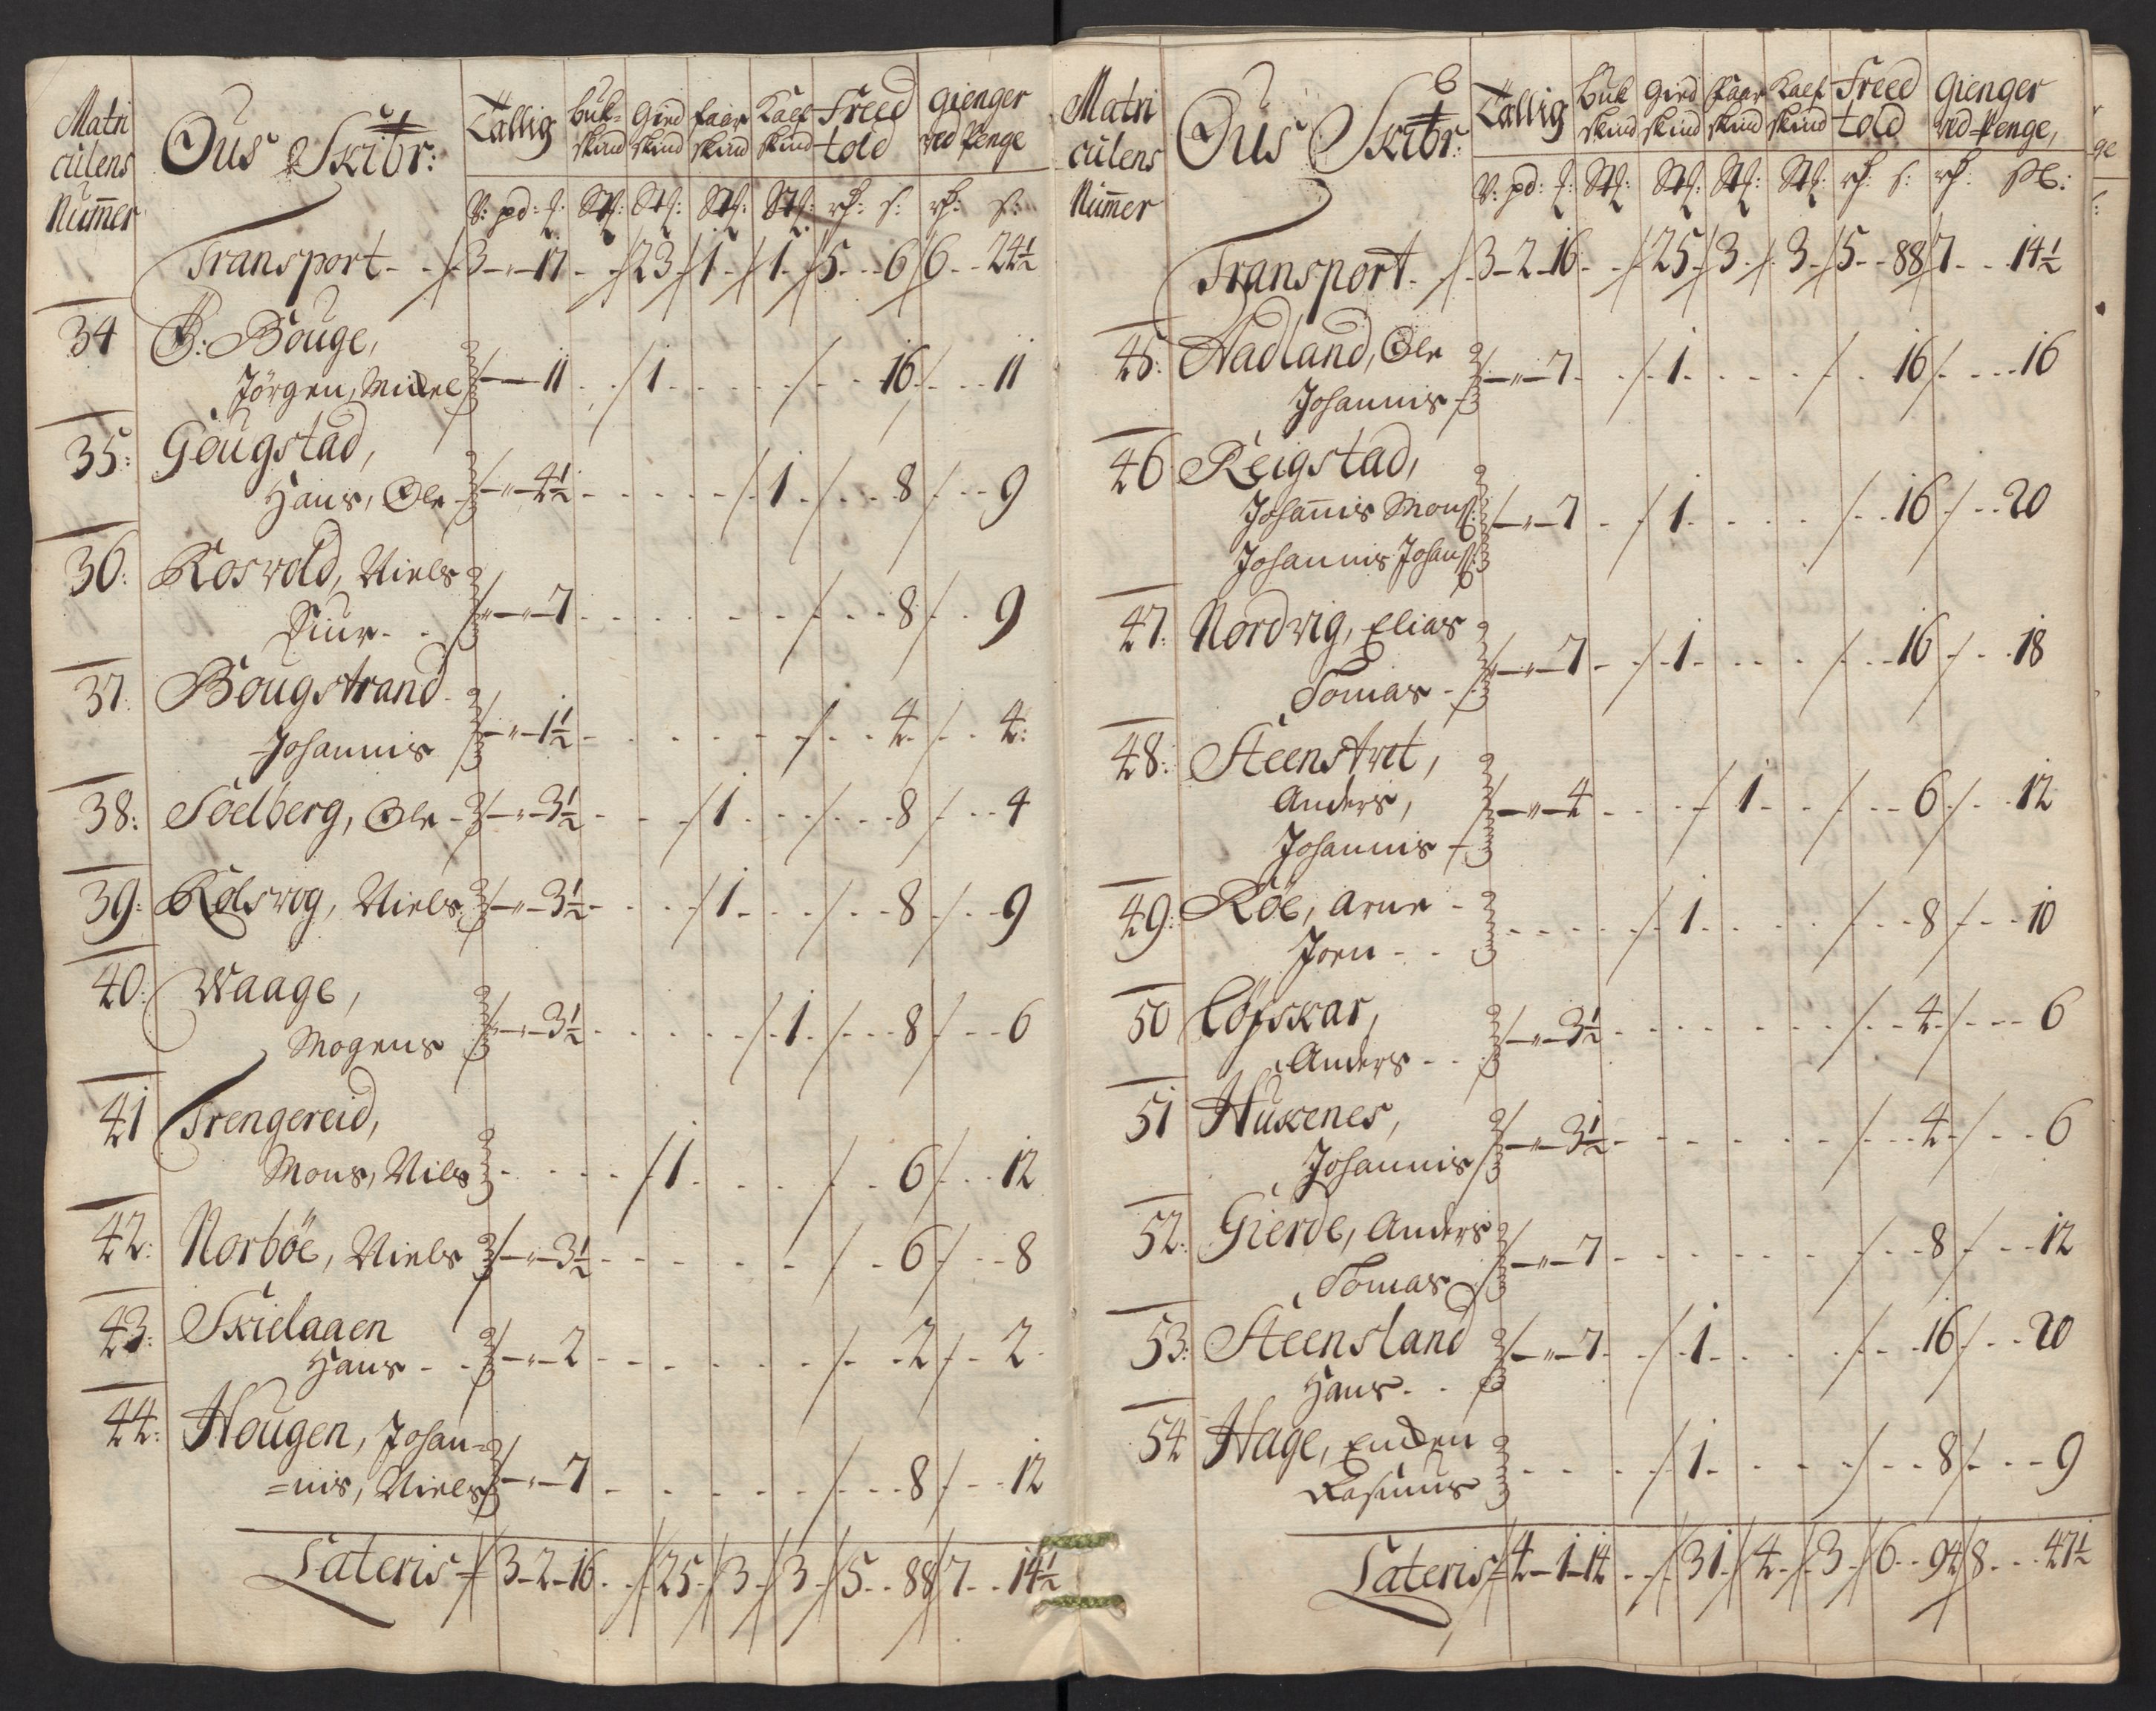 Matri
culens
Nummer
Ous Skibr:
Tallig
buk-
skind
Gied
skind
faar
skind
Kalf
skind
Freed
told
gienger
ved Penge
V: pd: f: Stk: Stk: Stk: Stk: rf: s: rf: s:
Transport - 3 - " - 17 - 23 - 1 - 1 - 5 - - 6 6 - - 24½
34 B: Bouge,
Jörgen, Mickel - - 11 - 1 - - - - 16 - - 11
35: Geugstad,
Hans, Ole - " - 4½ - - - - 1 - - 8 - - 9
36: Rosvold, Niels
Siur - - " - 7 - - - - - - 8 - - 9
37: Bougstrand
Johannis - " - 1½ - - - - - - 4 - - 4:
38: Söelberg, Ole - " - 3½ - - 1 - - - 8 - - 4
39: Kolsvog, Niels - " - 3½ - - 1 - - - 8 - - 9
40: Waage,
Mogens - " - 3½ - - - - 1 - - 8 - - 6
41 Trengereid,
Mons, Nils - - - - 1 - - - - 6 - - 12
42: Norböe, Niels - " - 3½ - - - - - 6 - - 8
43: Skielaaen
Hans - - - " - 2 - - - - - - 2 - - 2
44: Hougen, Johan-
=nis, Niels - " - 7 - - - - - - 8 - - 12
Lateris 3 - 2 - 16 - - 25 - 3 - 3 - 5 - - 88 7 - - 14½
Matri
culens
Nummer
Ous Skibr:
Tallig
buk
skind
Gied
skind
Faar
skind
Kalf
skind
Freed
told
Gienger
ved Penge,
V: pd: f: Stk: Stk: Stk: Stk: rf: s: rf: sk:
Transport - 3 - 2 - 16 - - 25 - 3 - 3 - 5 - - 88 7 - - 14½
45: Hadland, Ole
Johannis - " - 7 - - 1 - - - - 16 - - 16
46 Reigstad,
Johannis Mons:
Johannis Johans: - " - 7 - 1 - - - - 16 - - 20
47: Nordvig, Elias
Tomas - - " - 7 - 1 - - - - 16 - - 18
48: Steenstvet,
Anders,
Johannis - " - 4 - - - 1 - - - 6 - - 12
49: Röe, Arne -
Joen - - - - - - 1 - - - - 8 - - 10
50 Löfskar,
Anders - - - " - 3½ - - - - - - 4 - - 6
51 Hukenes,
Johannis - " - 3½ - - - - - - 4 - - 6
52: Gierde, Anders
Tomas - " - 7 - - - - - - 8 - - 12
53: Steensland
Hans - - - " - 7 - - 1 - - - - 16 - - 20
54 Hage, Enken
Rasmus - - - - 1 - - - - 8 - - 9
Lateris 4 - 1 - 14 - - 31 - 4 - 3 - 6 - - 94 8 - - 47½